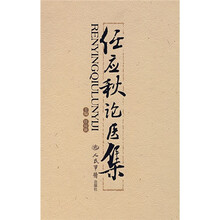 任应秋论医集
RENYINGQIULUNYIJI
人民军医出版社